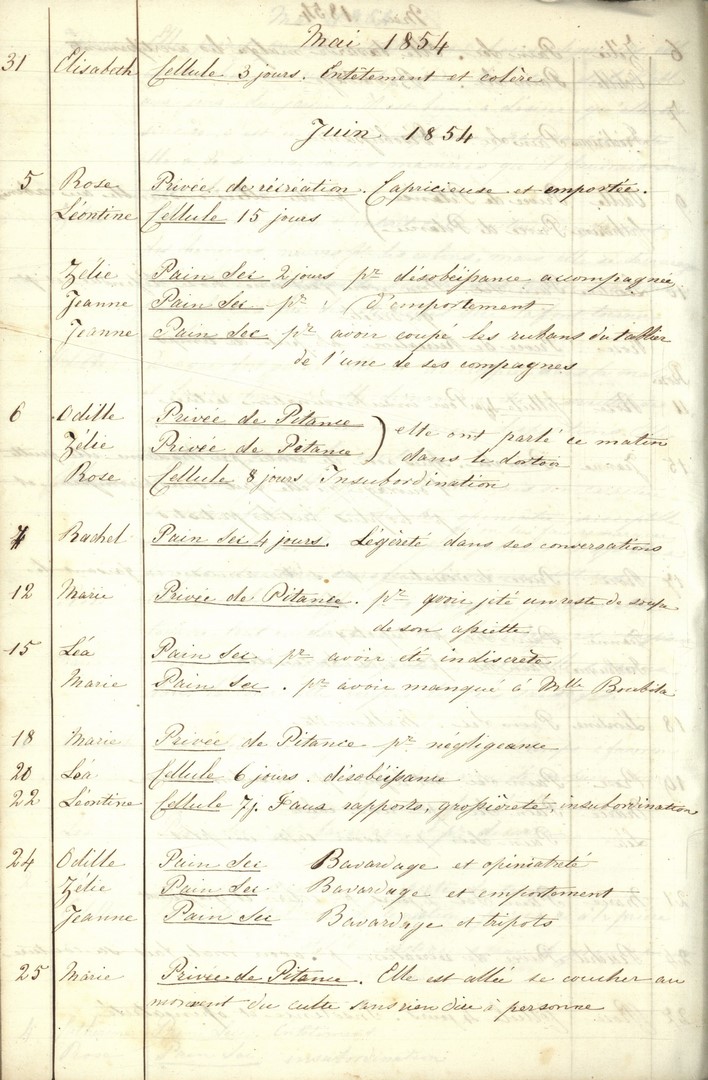 Mai 1854
31 Elisabeth Cellule 3 jours. Entêtement et colère
Juin 1854
5 Rose Privée de récréation. Capricieuse et emportée.
Léontine Cellule 15 jours
Zélie Pain Sec 2 jours pr désobéissance accompagnée
Jeanne Pain Sec pr d'emportement
Jeanne Pain Sec pr avoir coupé les rubans du tablier
de l'une de ses compagnes
6 Odille Privée de Pitance
Zélie Privée de Pitance
elle ont parlé ce matin
dans le dortoir
Rose Cellule 8 jours Insubordination
7 Rachel Pain Sec 4 jours. Légèreté dans ses conversations
12 Marie Privée de Pitance. pr avoir jeté un reste de soupe
de son assiette
15 Léa Pain Sec pr avoir été indiscrète
Marie Pain Sec. pr avoir manqué à Mlle
18 Marie Privée de Pitance pr négligeance
20 Léa Cellule 6 jours. désobéissance
22 Léontine Cellule 7 j. Faux rapports, grossièreté, insubordination
24 Odille Pain Sec Bavardage et opiniatreté
Zélie Pain Sec Bavardage et emportement
Jeanne Pain Sec Bavardage et tripots
25 Marie Privée de Pitance. Elle est allée se coucher au
moment du culte sans rien dire à personne